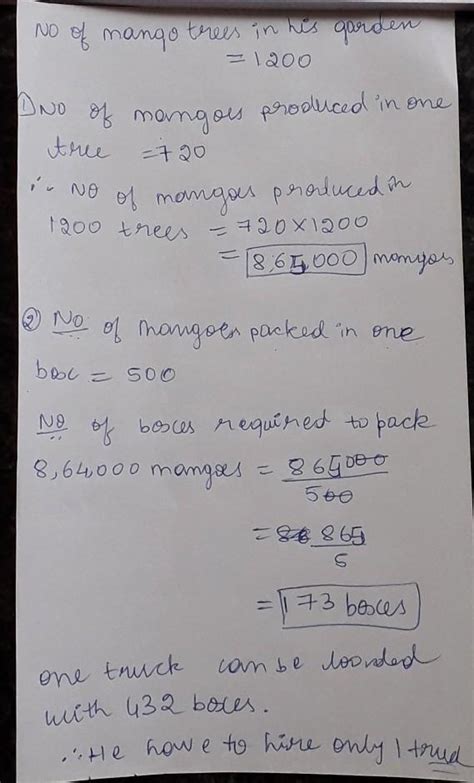 NO of mango trees in his garden
= 1200
1) NO of mangoes produced in one
tree = 720
∴ NO of mangoes produced in
1200 trees = 720 × 1200
= 8,65,000 mangoes
② NO of mangoes packed in one
box = 500
NO of boxes required to pack
8,64,000 mangoes = 865000
500
= 86 865
5
= 173 boxes
one truck can be loonded
with 432 boxes.
∴ He have to hire only 1 truck